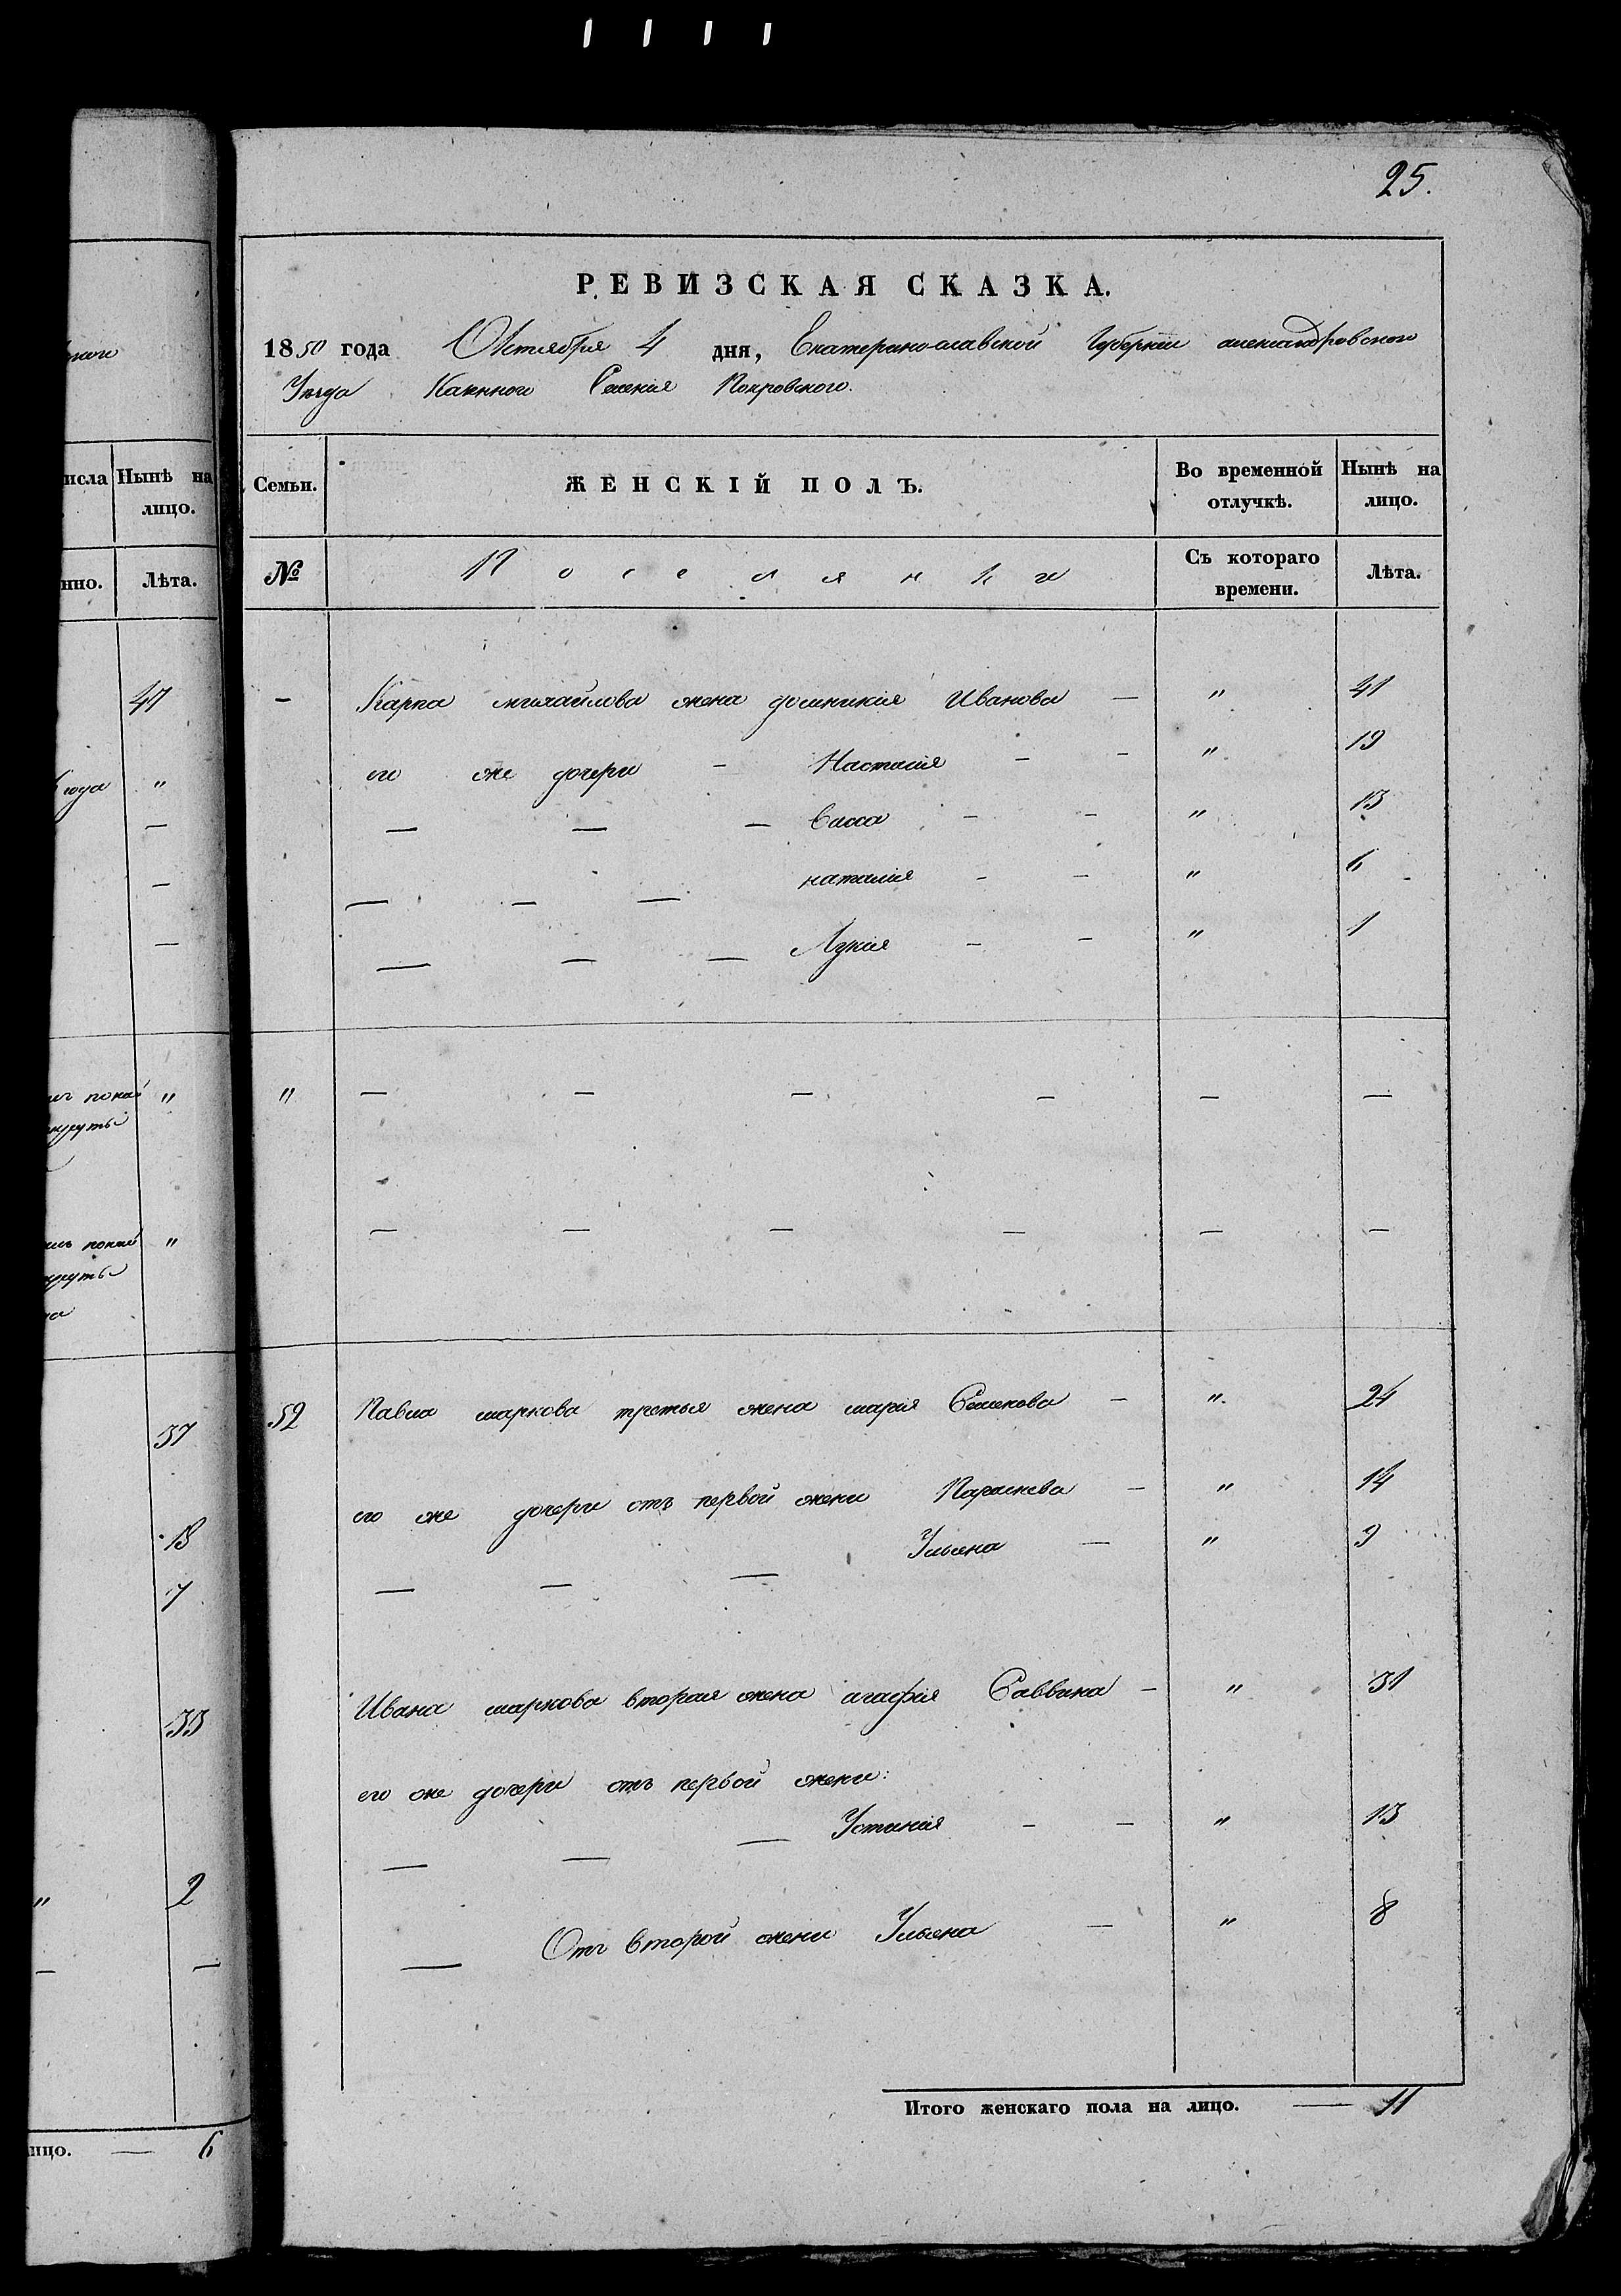 25.
РЕВИЗСКАЯ СКАЗКА.
1850 года Октября 4 дня, Екатеринославской Губернии александровского
Уезда Казенного Селения Покровского.
Семьи. ЖЕНСКІЙ ПОЛЪ. Во временной отлучкѣ. Нынѣ на лицо.
№ Поселянки Съ котораго времени. Лѣта.
— Карпа михайлова жена домникия Иванова — " 41
его же дочери — Настасия — — " 19
— — — Васса — — " 13
— — — наталия — — " 6
— — — Лукия — — " 1
" — — — — — —
— — — — — —
52 Павла маркова третья жена мария Семенова — " 24
его же дочери отъ первой жени Параскева — " 14
— — — Ульяна — " 9
Ивана маркова вторая жена агафия Саввина — " 31
его же дочери отъ первой жени:
— — — Устиния — — " 13
— Отъ второй жени Ульяна — " 8
Итого женскаго пола на лицо. — 11
исла Нынѣ на лицо.
нно. Лѣта.
47
года "
—
—
—
"
"
37
18
7
33
" 2
— —
ицо. — 6